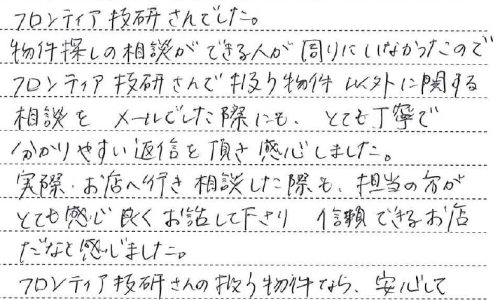 フロンティア技研さんでした。
物件探しの相談ができる人が周りにいなかったので
フロンティア技研さんで扱う物件以外に関する
相談をメールでした際にも、とても丁寧で
分かりやすい返信を頂き感心しました。
実際、お店へ行き相談した際も、担当の方が
とても感じ良くお話して下さり 信頼できるお店
だなと感じました。
フロンティア技研さんの扱う物件なら、安心して